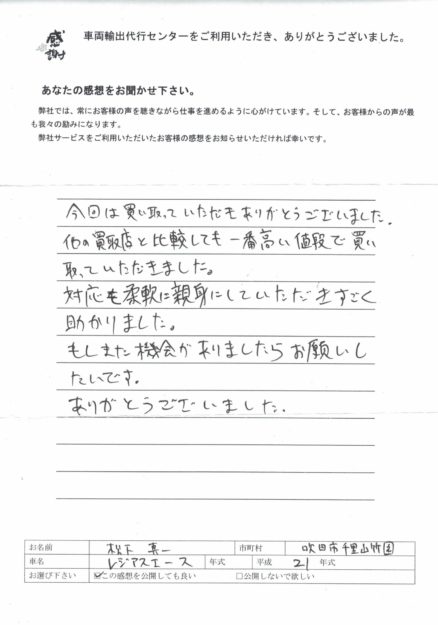 感謝
車両輸出代行センターをご利用いただき、ありがとうございました。
あなたの感想をお聞かせ下さい。
弊社では、常にお客様の声を聴きながら仕事を進めるように心がけています。そして、お客様からの声が最
も我々の励みになります。
弊社サービスをご利用いただいたお客様の感想をお知らせいただければ幸いです。
今回は買い取っていただきありがとうございました。
他の買取店と比較しても一番高い値段で買い
取っていただきました。
対応も柔軟に親身にしていただきすごく
助かりました。
もしまた機会がありましたらお願いし
たいです。
ありがとうございました.
お名前 松下 真一 市町村 吹田市千里山竹園
車名 レジアスエース 年式 平成 21 年式
お選び下さい ☑この感想を公開しても良い □公開しないで欲しい